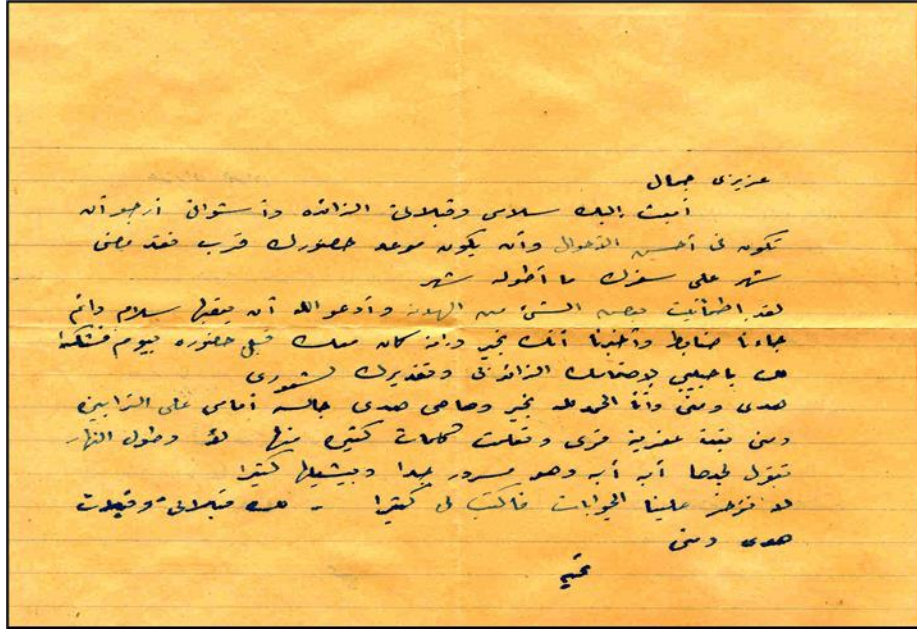 عزيزى جمال
أبعث إليك سلامى وقبلاتى الزائده وأشواقى أرجو أن
تكون فى أحسن الأحوال وأن يكون موعد حضورك قرب فقد مضى
شهر على سفرك ما أطوله شهر
لقد اطمأنيت بعض الشئ من الهدنة وأدعو الله أن يعقبها سلام دائم
جاءنا ضابط وأخبرنا أنك بخير وانه كان معك قبل حضوره بيوم فشكرا
لك يا حبيبى لاهتمامك الزائد بى وتقديرك لشعورى
هدى ومنى وأنا الحمد لله بخير وها هى هدى جالسه أمامى على الترابيزه
ومنى بقت عفريتة قوى وتعلمت كلمات كثيره منها لأ وطول النهار
تقول لجدها أبه أبه وهو مسرور جدا وبيشيلها كثيرا
علينا الجوابات فاكتب لى كثيرا - لك قبلاتى وقبلات
هدى ومنى
تحيه